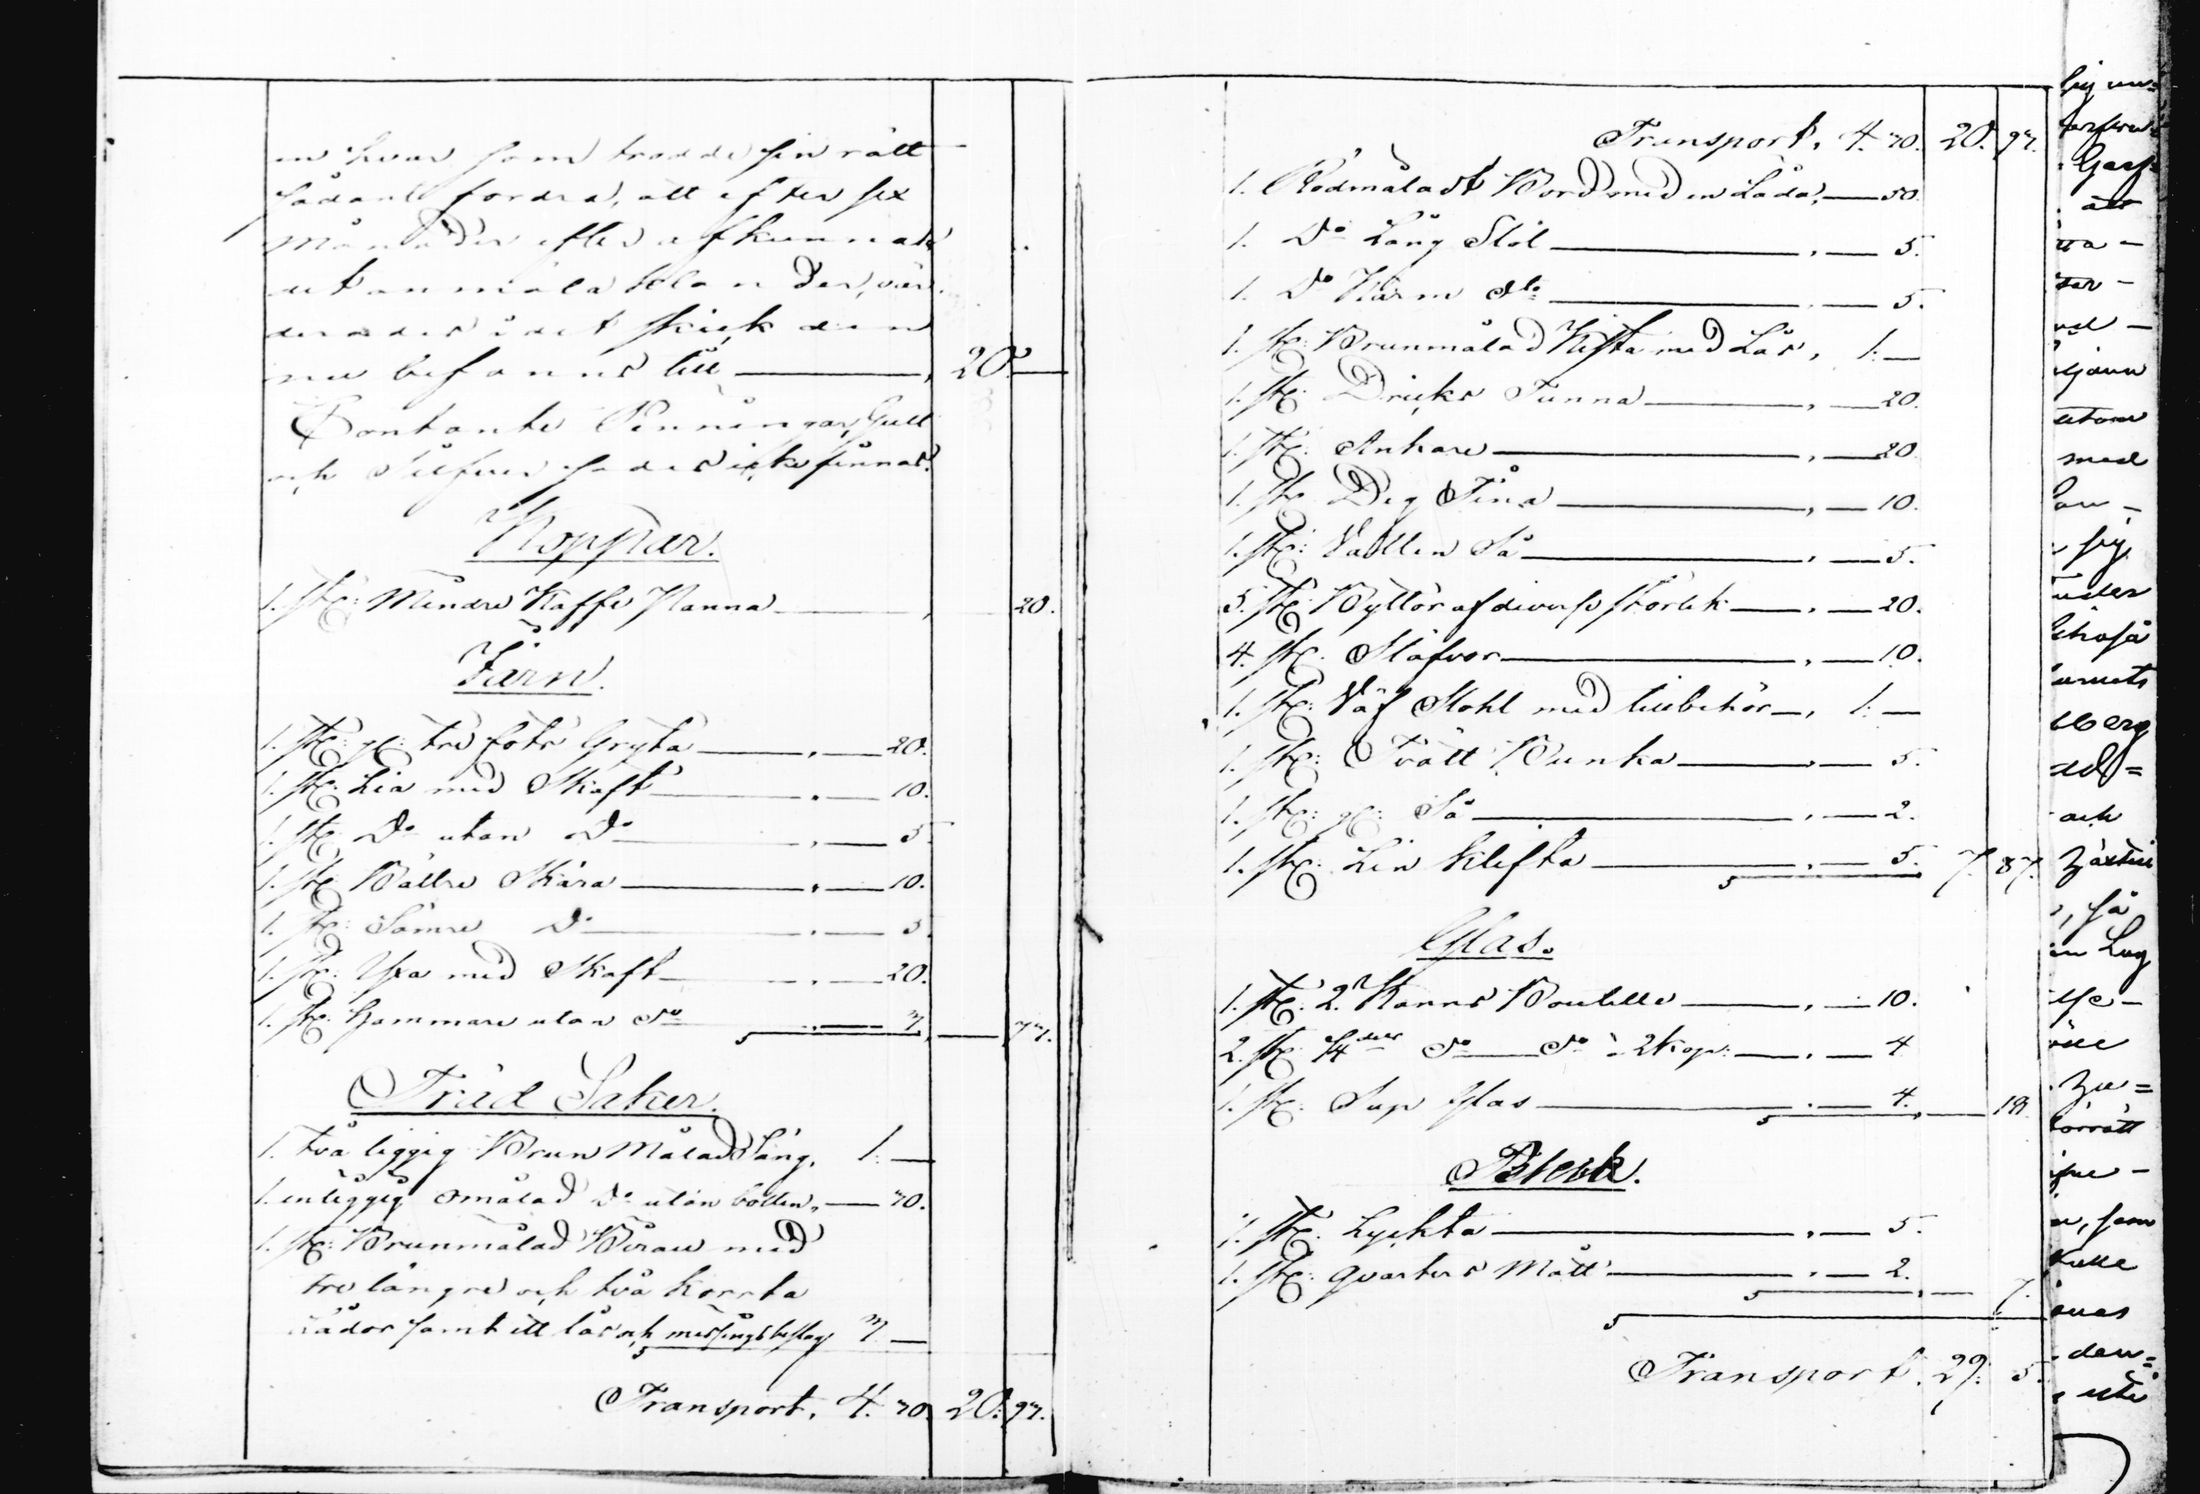 en hvar som trodde sin rätt
sådant fordra, att efter sex
månader efter afkunnade
utan måla klander, vär-
derades i det skick den
nu befanns till — 20. —
Contante Penningar, Gull
och Silfver sades icke finnas.
Koppar.
1. st: Mindre Kaffe Panna — 20.
Järn.
1. st: gl: tre fots Gryta — 20.
1. st: Lia med Skaft — 10.
1. st: Do utan Do — 5
1. st: Bättre Skära — 10.
1. st: Sämre Do — 5.
1. st: Yxa med Skaft — 20.
1. st: Hammare utan Do — 7. — 77.
Träd Saker.
1. två liggig Brun Målad Säng, 1. —
1. enliggig omålad Do utan botten, — 70.
1. st: Brunmålad Byrau med
tre längre och två korrta
Lådor samt ett lås och mesingsbeslag 3. —
Transport, 4. 70. 20. 97.
Transport, 4. 70. 20. 97.
1. Rödmåladt Bord med en Låda, — 50.
1. Do Lång Stol — 5.
1. Do Karm do — 5.
1. st: Brunmålad Kista med Lås, 1. —
1. st: Dricks Tunna — 20.
1. st: Ankare — 20.
1. st: Deg Tina — 10.
1. st: Vatten Så — 5.
5. st: Byttor af divers storlek — 20.
4. st: Stäfvor — 10.
1. st: Väf Stohl med tillbehör —, 1. —
1. st: Tvätt Bunka — 5.
1. st: gl: Så — 2.
1. st: Lin klifta — 5. 7. 87.
Glas.
1. st: 2. Kanns Boutelle — 10.
2. st: Do Do à 2 kop: — 4
1. st: Sup Glas — 4. — 18.
Bleck.
1. st: Lyckta — 5.
1. st: qvarters Mått — 2. — 7.
Transport. 29. 5.
att
med
sig
och
, så